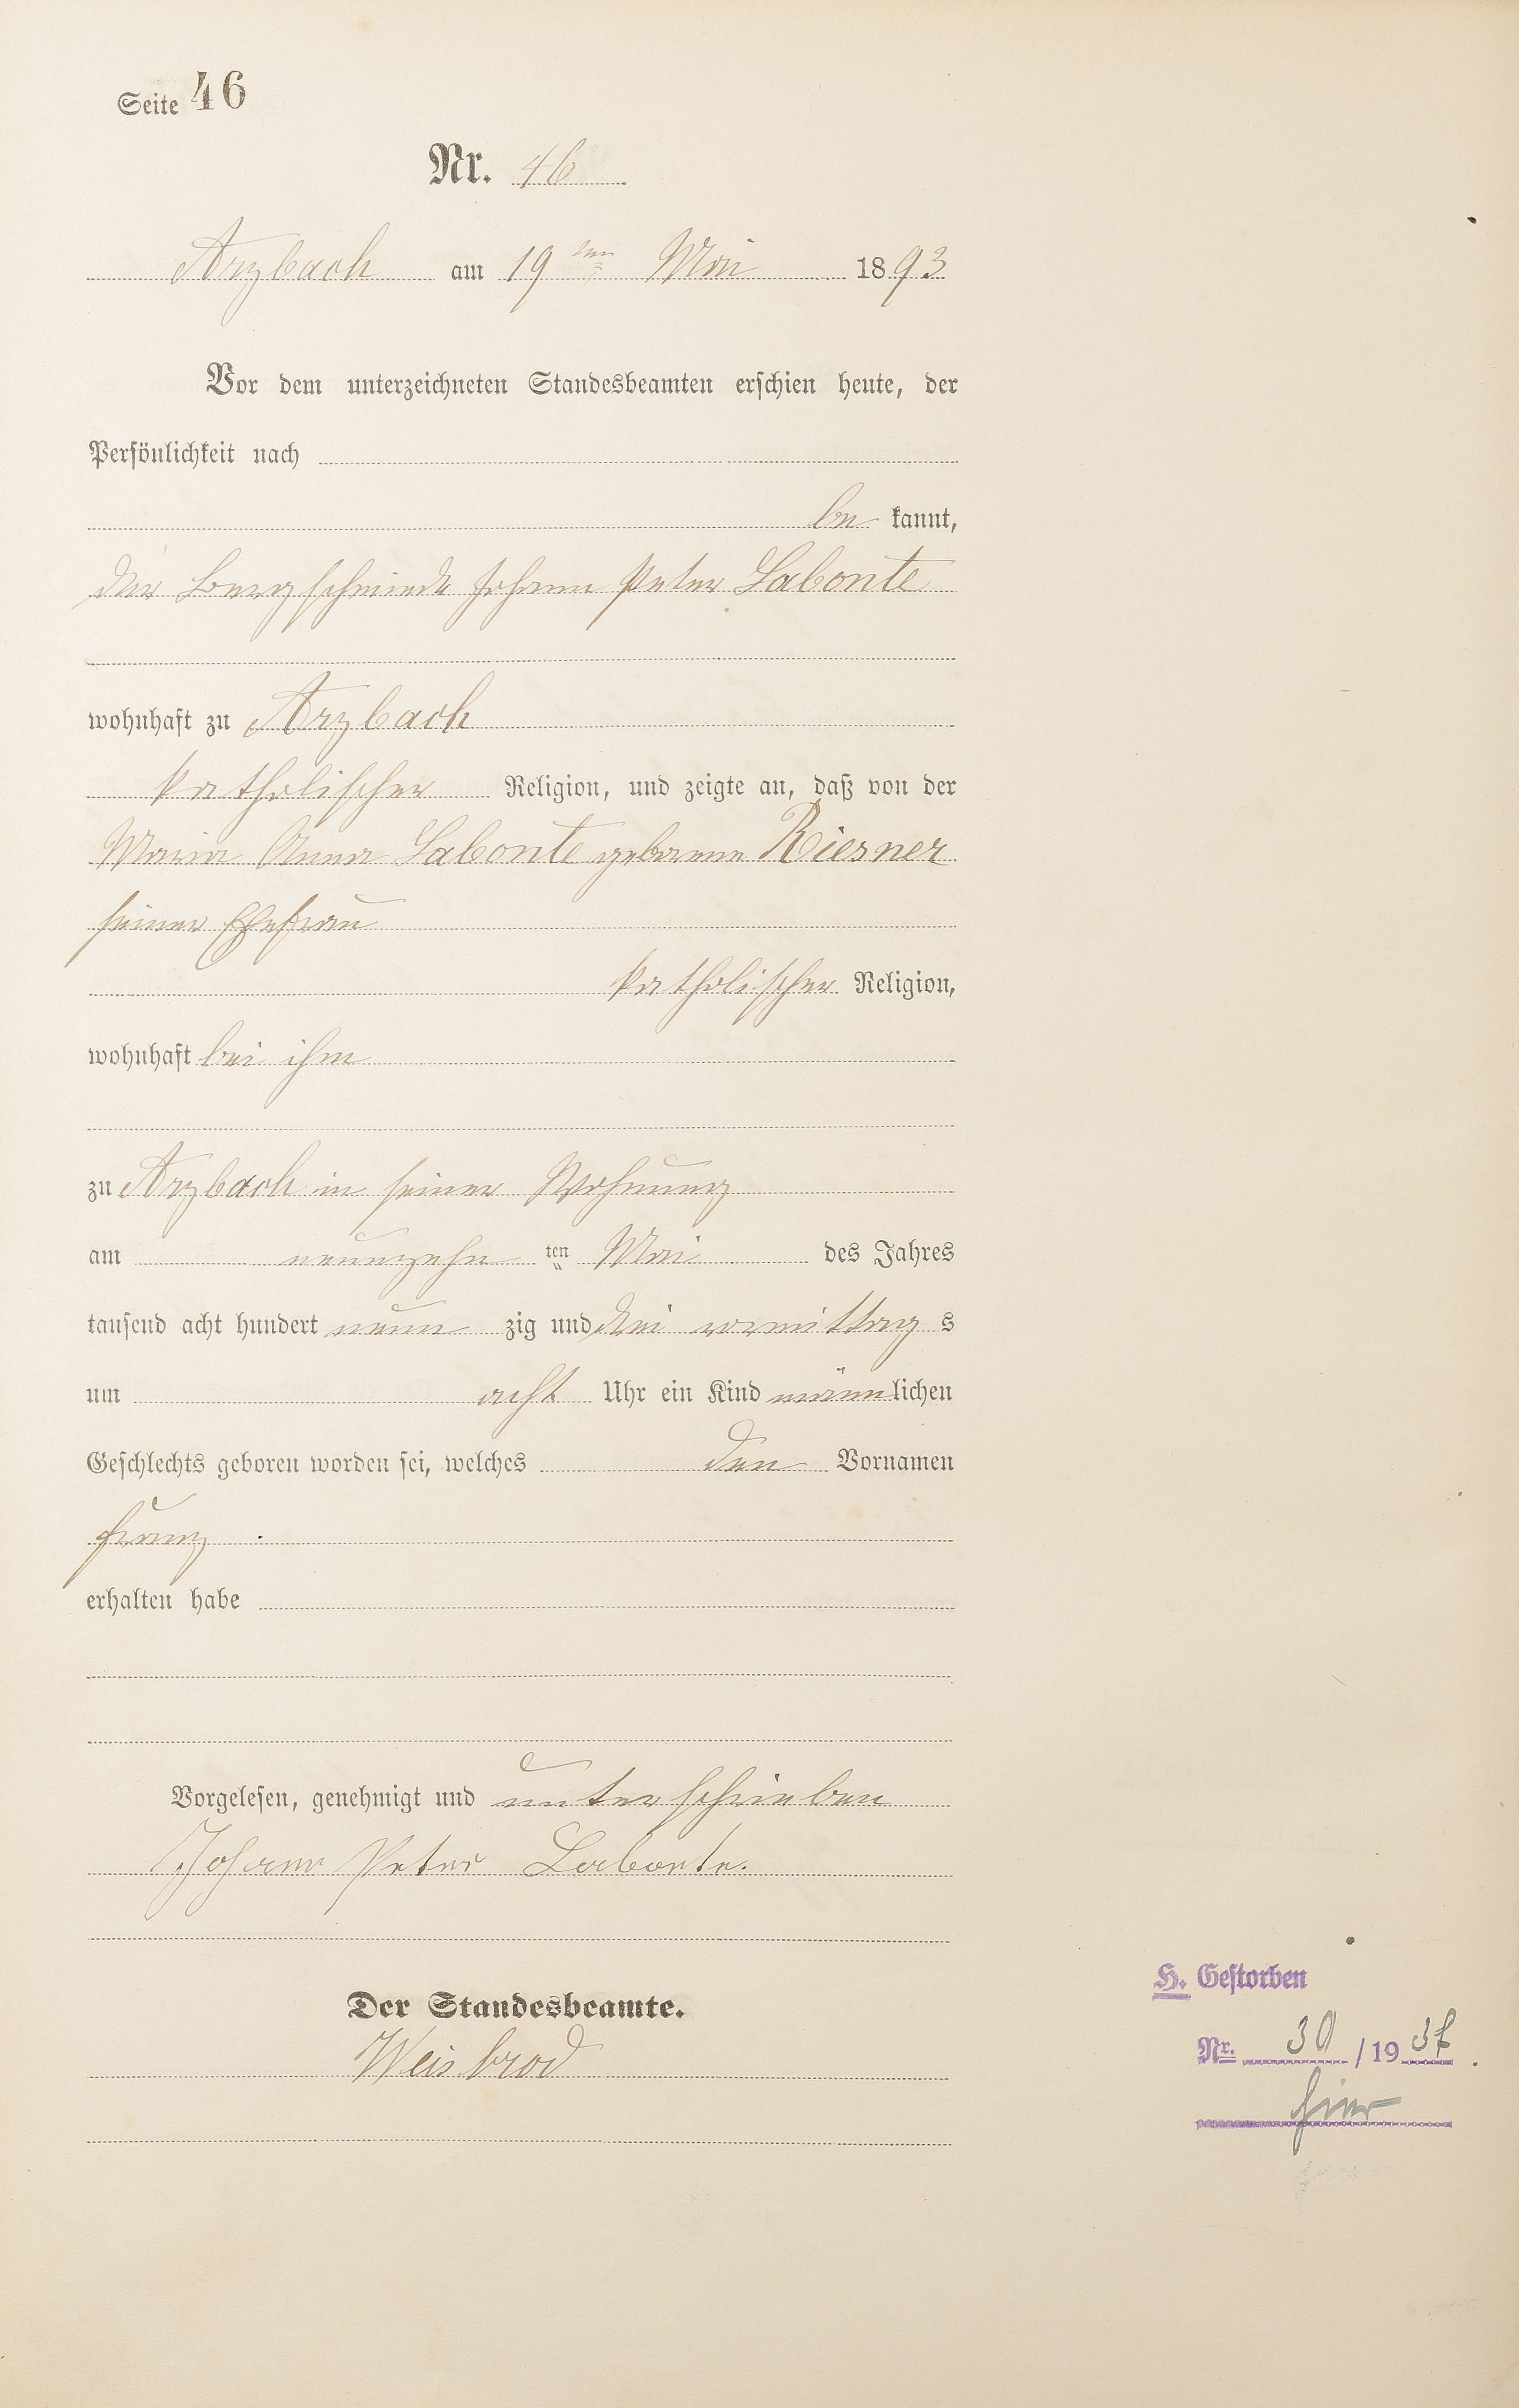 Seite 46
Nr. 46
Arzbach am 19ten Mai 1893
Vor dem unterzeichneten Standesbeamten erschien heute, der
Persönlichkeit nach
be kannt,
der Bergschmiede Johann Peter Labonte
wohnhaft zu Arzbach
katholischer Religion, und zeigte an, daß von der
Maria Anna Labonte geborene Riesner
seiner Ehefrau
katholischer Religion,
wohnhaft bei ihm
zu Arzbach in seiner Wohnung
am neunzehn ten Mai des Jahres
tausend acht hundert neun zig und drei vormittag s
um acht Uhr ein Kind männlichen
Geschlechts geboren worden sei, welches den Vornamen
Franz
erhalten habe
Vorgelesen, genehmigt und unterschrieben
Johann Peter Labonte.
Der Standesbeamte.
Weisbrod
H. Gestorben
Nr. 30 / 19
hier